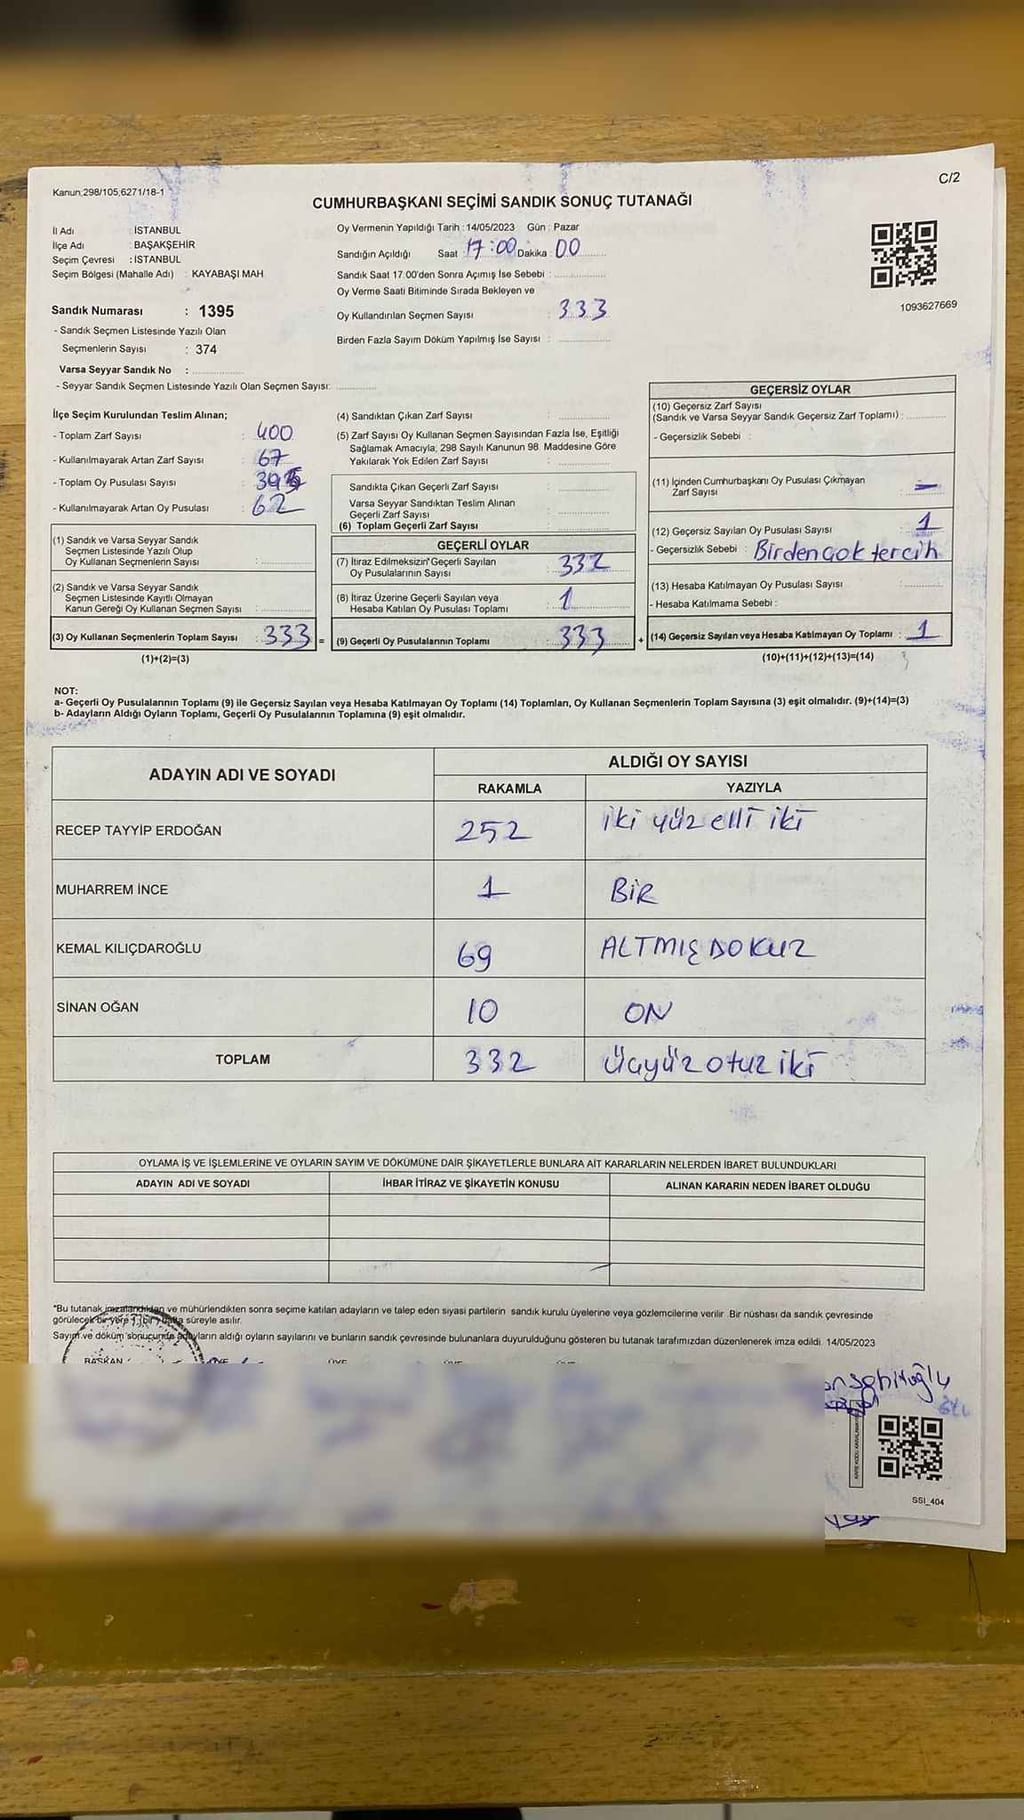 Kanun;298/105,6271/18-1
C/2
CUMHURBAŞKANI SEÇİMİ SANDIK SONUÇ TUTANAĞI
İl Adı : İSTANBUL
İlçe Adı : BAŞAKŞEHİR
Seçim Çevresi : İSTANBUL
Seçim Bölgesi (Mahalle Adı) : KAYABAŞI MAH
Sandık Numarası : 1395
- Sandık Seçmen Listesinde Yazılı Olan
Seçmenlerin Sayısı : 374
Varsa Seyyar Sandık No :
- Seyyar Sandık Seçmen Listesinde Yazılı Olan Seçmen Sayısı:
Oy Vermenin Yapıldığı Tarih : 14/05/2023 Gün : Pazar
Sandığın Açıldığı Saat : 17:00 Dakika : 00
Sandık Saat 17:00'den Sonra Açımış İse Sebebi :
Oy Verme Saati Bitiminde Sırada Bekleyen ve
Oy Kullandırılan Seçmen Sayısı : 333
Birden Fazla Sayım Döküm Yapılmış İse Sayısı :
1093627669
İlçe Seçim Kurulundan Teslim Alınan;
- Toplam Zarf Sayısı : 400
- Kullanılmayarak Artan Zarf Sayısı : 67
- Toplam Oy Pusulası Sayısı :
- Kullanılmayarak Artan Oy Pusulası : 62
(1) Sandık ve Varsa Seyyar Sandık
Seçmen Listesinde Yazılı Olup
Oy Kullanan Seçmenlerin Sayısı :
(2) Sandık ve Varsa Seyyar Sandık
Seçmen Listesinde Kayıtlı Olmayan
Kanun Gereği Oy Kullanan Seçmen Sayısı :
(3) Oy Kullanan Seçmenlerin Toplam Sayısı : 333 =
(1)+(2)=(3)
(4) Sandıktan Çıkan Zarf Sayısı :
(5) Zarf Sayısı Oy Kullanan Seçmen Sayısından Fazla İse, Eşitliği
Sağlamak Amacıyla, 298 Sayılı Kanunun 98. Maddesine Göre
Yakılarak Yok Edilen Zarf Sayısı :
Sandıkta Çıkan Geçerli Zarf Sayısı :
Varsa Seyyar Sandıktan Teslim Alınan
Geçerli Zarf Sayısı :
(6) Toplam Geçerli Zarf Sayısı :
GEÇERLİ OYLAR
(7) İtiraz Edilmeksizin Geçerli Sayılan
Oy Pusulalarının Sayısı : 332
(8) İtiraz Üzerine Geçerli Sayılan veya
Hesaba Katılan Oy Pusulası Toplamı : 1
(9) Geçerli Oy Pusulalarının Toplamı : 333 +
GEÇERSİZ OYLAR
(10) Geçersiz Zarf Sayısı
(Sandık ve Varsa Seyyar Sandık Geçersiz Zarf Toplamı) :
- Geçersizlik Sebebi :
(11) İçinden Cumhurbaşkanı Oy Pusulası Çıkmayan
Zarf Sayısı : -
(12) Geçersiz Sayılan Oy Pusulası Sayısı : 1
- Geçersizlik Sebebi : Birden çok tercih
(13) Hesaba Katılmayan Oy Pusulası Sayısı :
- Hesaba Katılmama Sebebi :
(14) Geçersiz Sayılan veya Hesaba Katılmayan Oy Toplamı : 1
(10)+(11)+(12)+(13)=(14)
NOT:
a- Geçerli Oy Pusulalarının Toplamı (9) ile Geçersiz Sayılan veya Hesaba Katılmayan Oy Toplamı (14) Toplamları, Oy Kullanan Seçmenlerin Toplam Sayısına (3) eşit olmalıdır. (9)+(14)=(3)
b- Adayların Aldığı Oyların Toplamı, Geçerli Oy Pusulalarının Toplamına (9) eşit olmalıdır.
ADAYIN ADI VE SOYADI ALDIĞI OY SAYISI
RAKAMLA YAZIYLA
RECEP TAYYİP ERDOĞAN 252 iki yüz elli iki
MUHARREM İNCE 1 BİR
KEMAL KILIÇDAROĞLU 69 ALTMIŞ DOKUZ
SİNAN OĞAN 10 ON
TOPLAM 332 üçyüz otuz iki
OYLAMA İŞ VE İŞLEMLERİNE VE OYLARIN SAYIM VE DÖKÜMÜNE DAİR ŞİKAYETLERLE BUNLARA AİT KARARLARIN NELERDEN İBARET BULUNDUKLARI
ADAYIN ADI VE SOYADI İHBAR İTİRAZ VE ŞİKAYETİN KONUSU ALINAN KARARIN NEDEN İBARET OLDUĞU
*Bu tutanak imzalandıktan ve mühürlendikten sonra seçime katılan adayların ve talep eden siyasi partilerin sandık kurulu üyelerine veya gözlemcilerine verilir. Bir nüshası da sandık çevresinde
görülecek bir yere 1 (bir) hafta süreyle asılır.
Sayım ve döküm sonucunda adayların aldığı oyların sayılarını ve bunların sandık çevresinde bulunanlara duyurulduğunu gösteren bu tutanak tarafımızdan düzenlenerek imza edildi. 14/05/2023
BAŞKAN ÜYE ÜYE ÜYE ÜYE
SSI_404